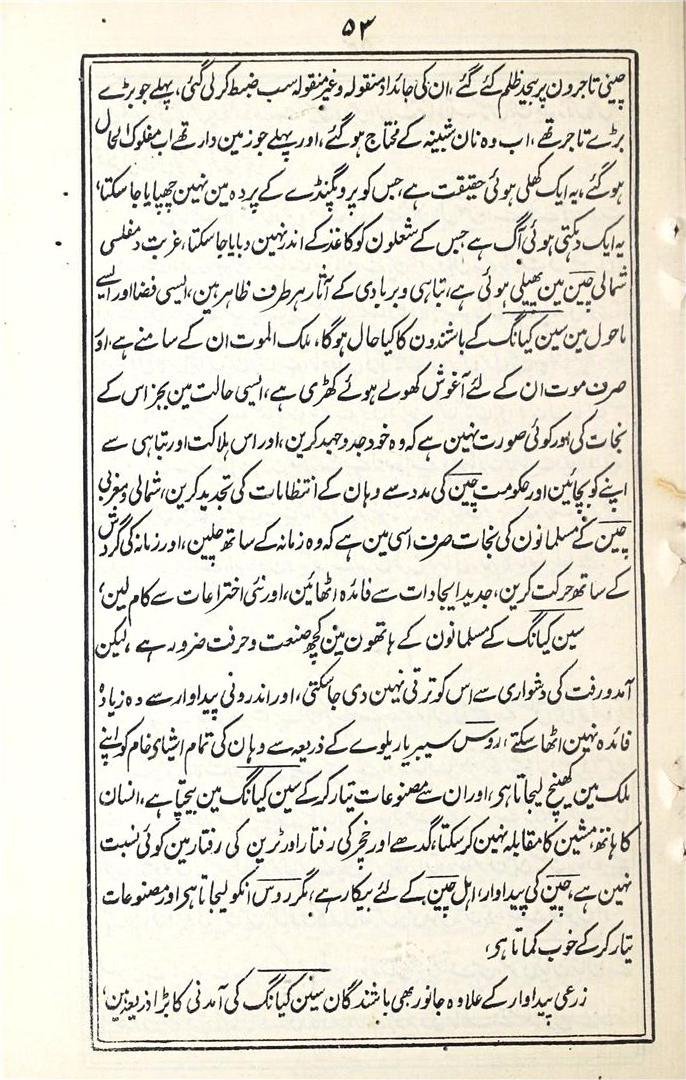 ۵۳
چینی تاجرون پر بیحد ظلم کئے گئے، ان کی جائداد منقولہ وغیر منقولہ سب ضبط کر لی گئی، پہلے جو بڑے
بڑے تاجر تھے، اب وہ نان شبینہ کے محتاج ہو گئے، اور پہلے جو زمین دار تھے اب مفلوک الحال
ہو گئے، یہ ایک کھلی ہوئی حقیقت ہے، جس کو پروپگنڈے کے پردہ مین نہین چھپایا جا سکتا،
یہ ایک دہکتی ہوئی آگ ہے جس کے شعلون کو کاغذ کے اندر نہین دبایا جا سکتا، غربت و مفلسی
شمالی چین مین پھیلی ہوئی ہے، تباہی و بربادی کے آثار ہر طرف ظاہر ہین، ایسی فضا اور ایسے
ماحول مین سین کیانگ کے باشندون کا کیا حال ہوگا، ملک الموت ان کے سامنے ہے، اور
صرف موت ان کے لئے آغوش کھولے ہوئے کھڑی ہے، ایسی حالت مین بجز اس کے
نجات کی اور کوئی صورت نہین ہے کہ وہ خود جدوجہد کرین، اور اس ہلاکت اور تباہی سے
اپنے کو بچائین اور حکومت چین کی مدد سے وہان کے انتظامات کی تجدید کرین، شمالی و مغربی
چین کے مسلمانون کی نجات صرف اسی مین ہے کہ وہ زمانہ کے ساتھ چلین، اور زمانہ کی گردش
کے ساتھ حرکت کرین، جدید ایجادات سے فائدہ اٹھائین، اور نئی اختراعات سے کام لین،
سین کیانگ کے مسلمانون کے ہاتھون مین کچھ صنعت و حرفت ضرور ہے، لیکن
آمد ورفت کی دشواری سے اس کو ترقی نہین دی جا سکتی، اور اندرونی پیداوار سے وہ زیادہ
فائدہ نہین اٹھا سکتے، روس سیبریا ریلوے کے ذریعہ سے وہان کی تمام اشیاے خام کو اپنے
ملک مین کھینچ لیجاتا ہی، اور ان سے مصنوعات تیار کر کے سین کیانگ مین بیچتا ہے، انسان
کا ہاتھ، مشین کا مقابلہ نہین کر سکتا، گدھے اور خچر کی رفتار اور ٹرین کی رفتار مین کوئی نسبت
نہین ہے، چین کی پیداوار، اہل چین کے لئے بیکار ہے، مگر روس انکو لیجاتا ہی اور مصنوعات
تیار کر کے خوب کماتا ہی،
زرعی پیداوار کے علاوہ جانور بھی باشندگان سین کیانگ کی آمدنی کا بڑا ذریعہ ہین،